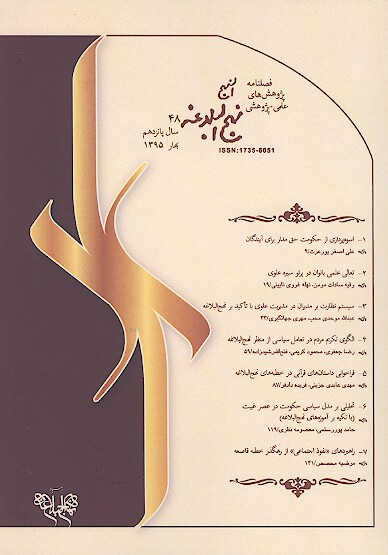 فصلنامه
پژوهش‌های
علمی-پژوهشی
نهج البلاغه
۴۸
سال پانزدهم
بهار ۱۳۹۵
ISSN:1735-8051
۱- اسوه‌پردازی از حکومت حق مدار برای آیندگان
علی اصغر پورعزت/۹
۲- تعالی علمی بانوان در پرتو سیره علوی
رقیه سادات مومن، نهله غروی نایینی/۱۷
۳- سیستم نظارت بر مدیران در مدیریت علوی با تأکید بر نهج‌البلاغه
عبدالله موحدی محب، مهری جهانگیری/۳۳
۴- الگوی تکریم مردم در تعامل سیاسی از منظر نهج‌البلاغه
رضا جعفری، محمود کریمی، فتح‌الله شیدزاده/۵۹
۵- فراخوانی داستان‌های قرآنی در خطبه‌های نهج‌البلاغه
مهدی عابدی جزینی، فریده دادفر/۸۷
۶- تحلیلی بر مدل سیاسی حکومت در عصر غیبت
(با تکیه بر آموزه‌های نهج‌البلاغه)
حامد پوررستمی، معصومه نظری/۱۱۹
۷- راهبردهای «نفوذ اجتماعی» از رهگذر خطبه قاصعه
مرضیه محصص/۱۴۱